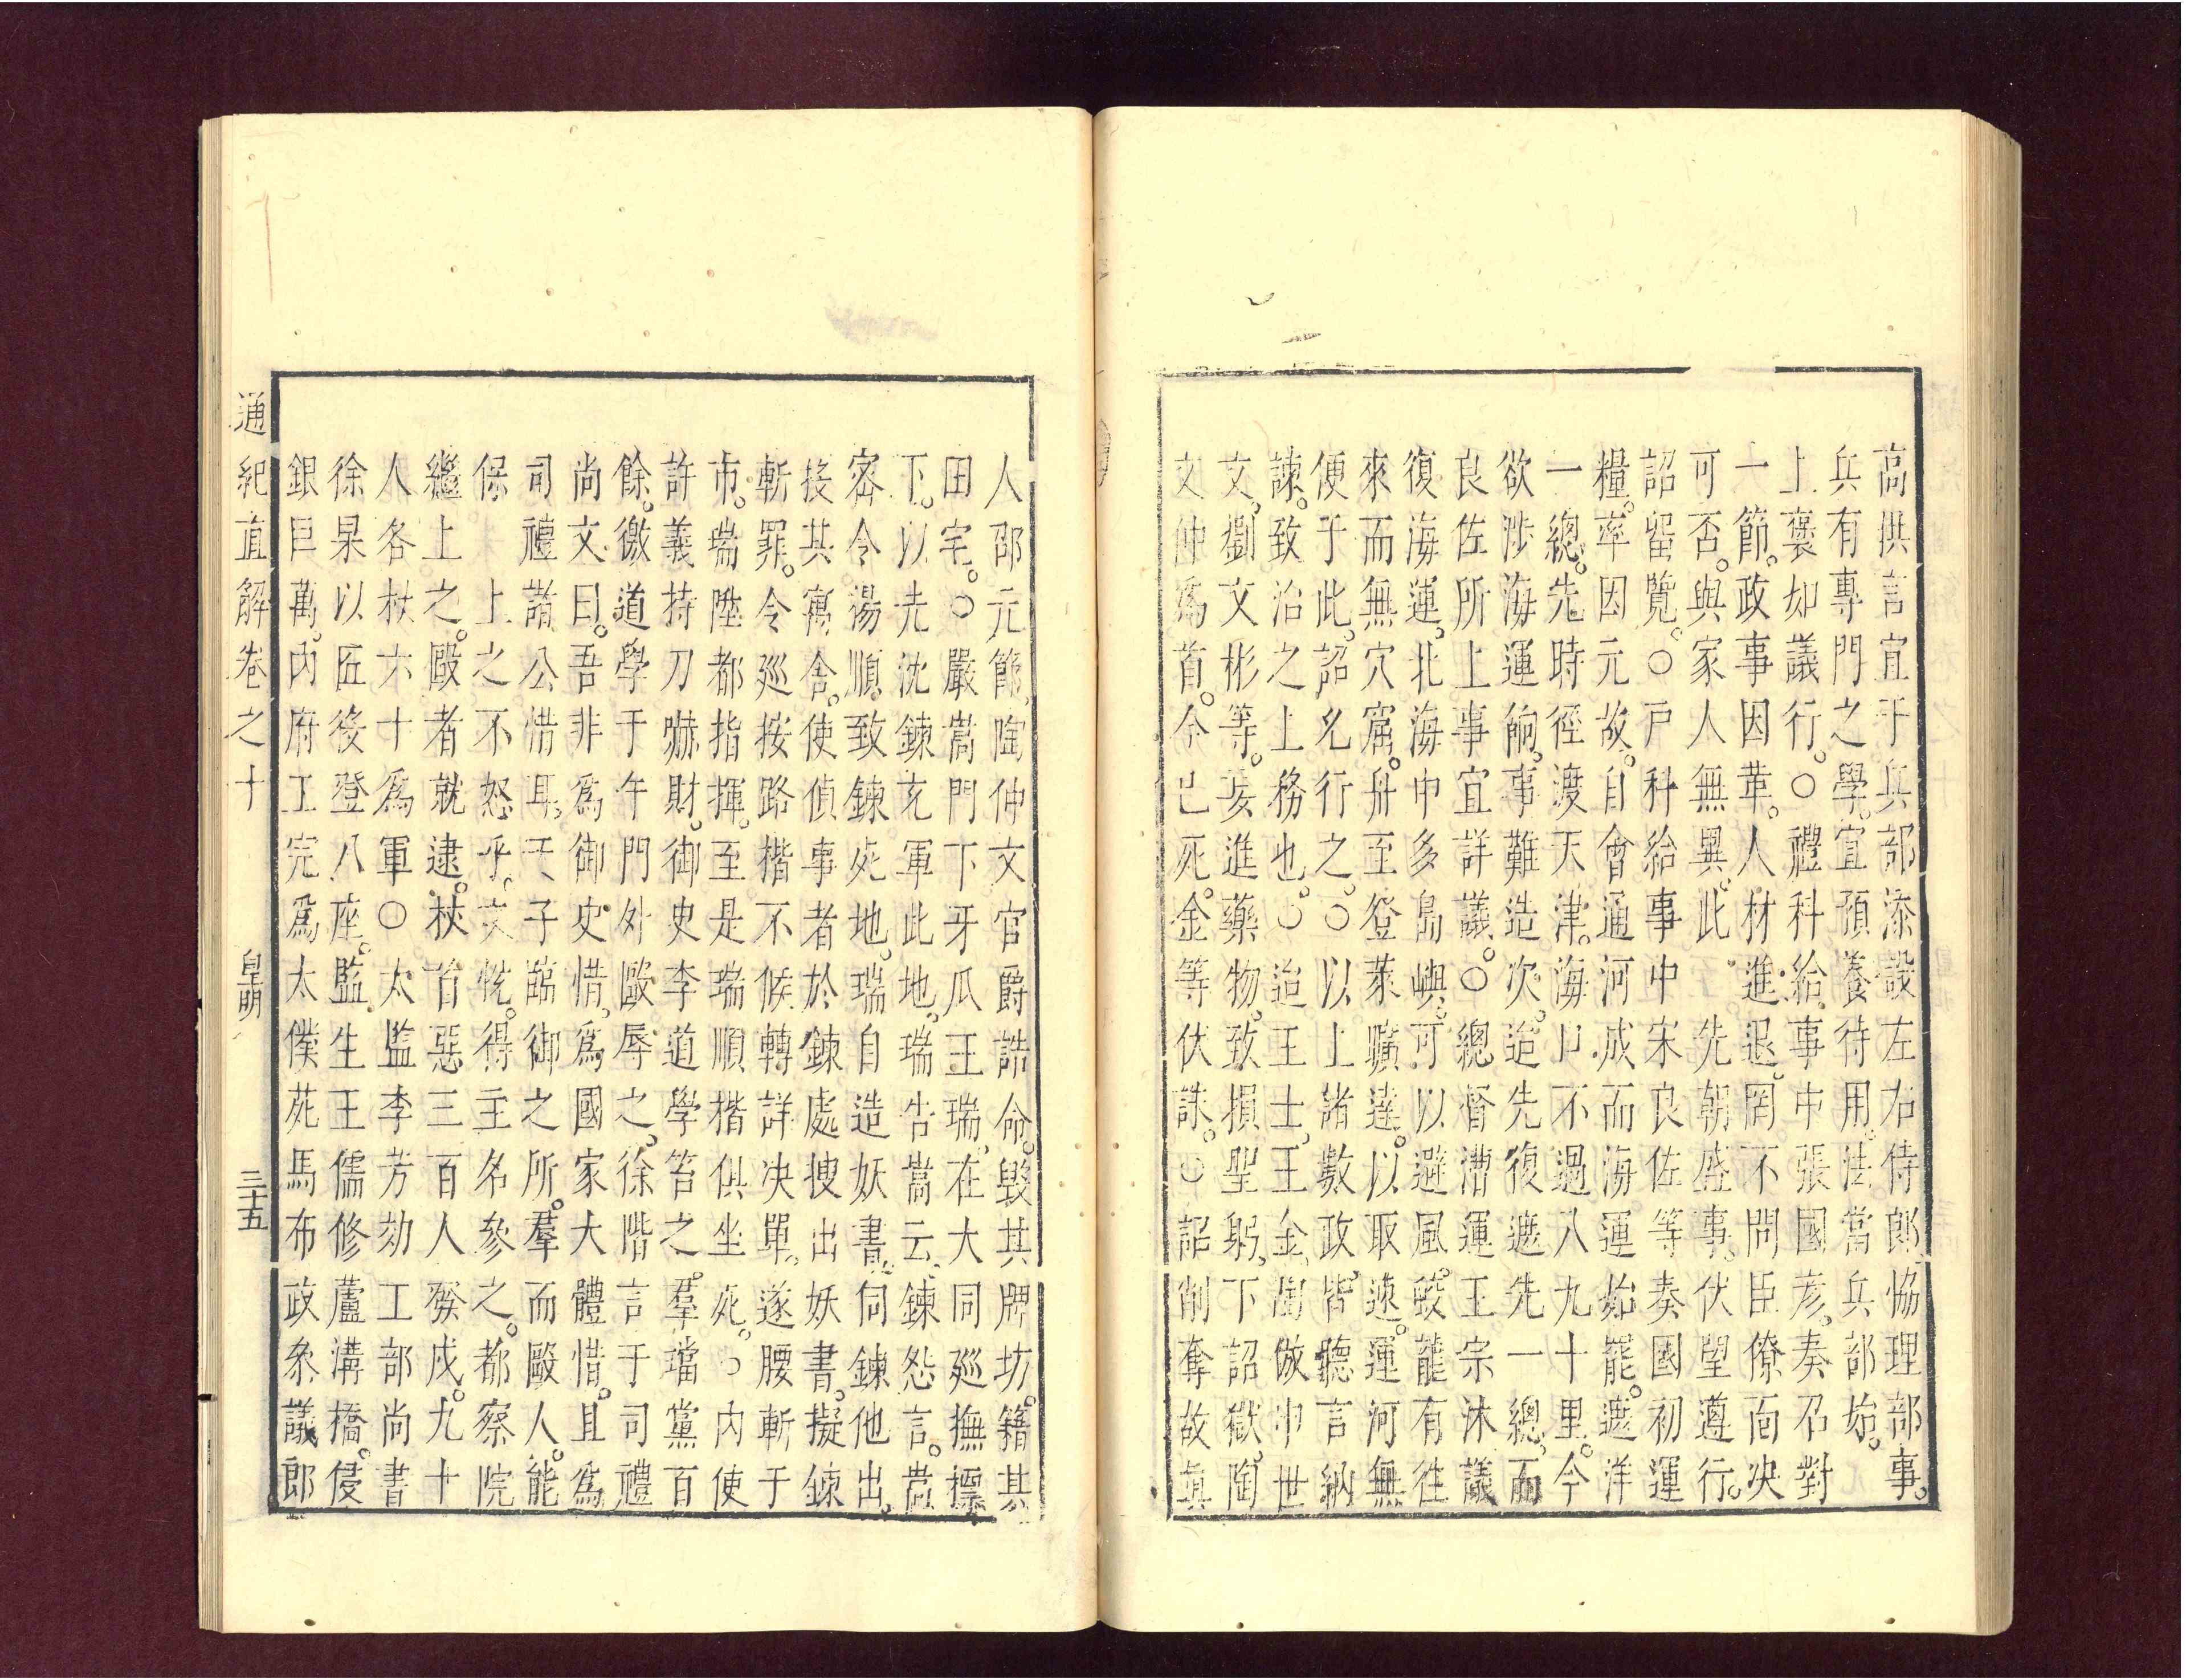 高供言宜于兵部添設左右侍郎協理部事
兵有專門之學宜預養待用法當兵部始
上褒如議行○禮科給事中張國彥奏召對
一節政事因革人材進退罔不問臣僚面决
可否與家人無異此 先朝盛事伏望遵行
詔留覽○戸科給事中宋良佐等奏國初運
糧率因元故自會通河成而海運始罷遮洋
一總先時徑渡天津海口不過八九十里今
欲涉海運餉事難造次迨先復遮先一總而
良佐所上事宜詳議○總督漕運王宗沐議
復海運北海中多島嶼可以避風蛟龍有徃
來而無穴窟舟至登萊曠達以取速運河無
便于此詔允行之○以上諸數政皆聽言納
諫致治之上務也○迨王士王金陶倣申世
文劉文彬等妄進藥物致損聖躬下詔獄陶
文仲爲首今已死金等伏誅○詔削奪故眞
人邵元節陶仲文官爵誥命毀其牌坊籍其
田宅○嚴嵩門下牙瓜王瑞在大同廵撫標
下以先沈鍊充軍此地瑞告嵩云鍊怨言嵩
密令湯順致鍊死地瑞自造妖書伺鍊他出
接其寓舍使偵事者於鍊處搜出妖書擬鍊
斬罪令廵按路楷不候轉詳决單遂腰斬于
市瑞陞都指揮至是瑞順楷俱坐死○內使
許義持刀嚇財御史李道學笞之羣璫黨百
餘徼道學于午門外毆辱之徐階言于司禮
尚文曰吾非爲御史惜爲國家大體惜且爲
司禮諸公惜耳天子臨御之所羣而毆人能
保 上之不怒乎文恍得主名參之都察院
繼上之毆者就逮杖首惡三百人發戍九十
人各杖六十爲軍○太監李芳劾工部尚書
徐杲以匠役登八座監生王儒修蘆溝橋侵
銀巨萬內府工完爲太僕苑馬布政叅議郎
通紀直解卷之十 皇明 三十五